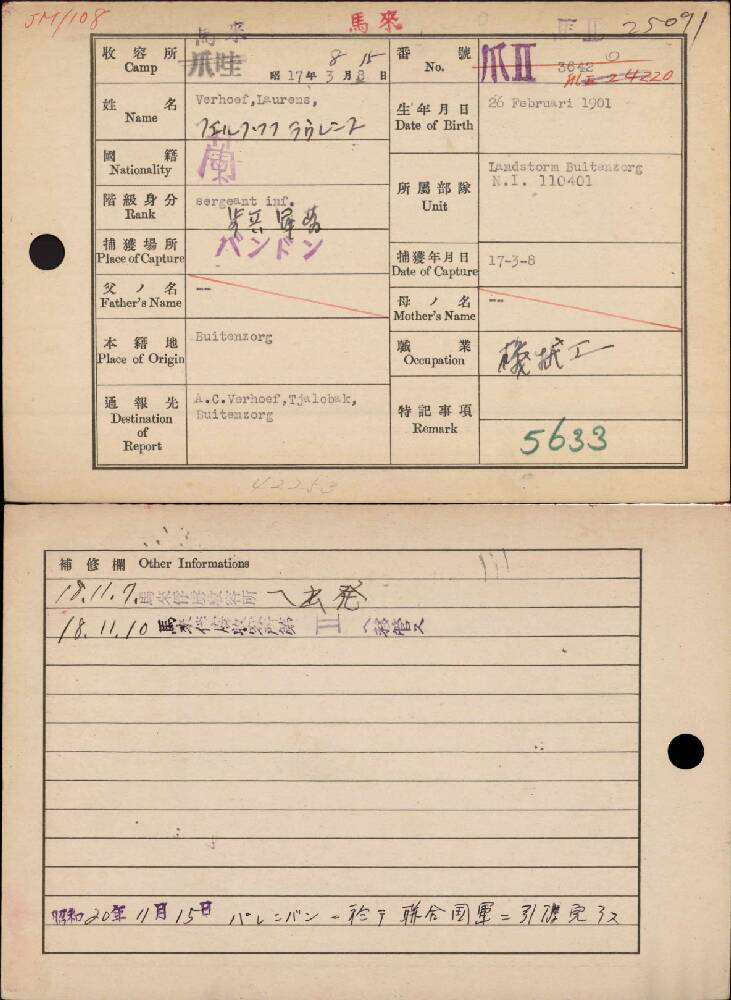 JM/108
馬來
25091
馬來
收容所 Camp
爪哇
8 15
昭17年3月8日
番號 No.
爪II
3642
4220
姓名 Name
Verhoef,Laurens,
生年月日 Date of Birth
26 Februari 1901
國籍 Nationality
蘭
所屬部隊 Unit
Landstorm Buitenzorg
N.I. 110401
階級身分 Rank
sergeant inf.
捕獲場所 Place of Capture
バンドン
捕獲年月日 Date of Capture
17-3-8
父ノ名 Father's Name
--
母ノ名 Mother's Name
--
本籍地 Place of Origin
Buitenzorg
職業 Occupation
機械工
通報先 Destination of Report
A.C.Verhoef,Tjalobak,
Buitenzorg
特記事項 Remark
5633
42253
補修欄 Other Informations
18.11.7. 馬来俘虜収容所ヘ出発
18.11.10 馬来俘虜収容所第II ヘ移管ス
昭和20年11月15日 パレンバンニ於テ聯合国軍ニ引渡完了ス